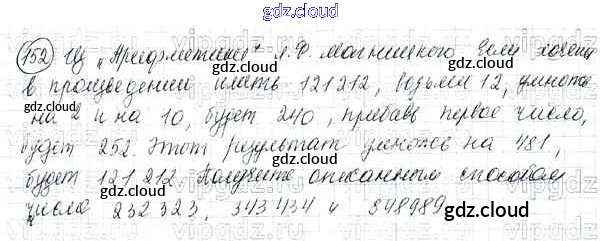 gdz.cloud
152 Из "Арифметики" Л.Ф. Магницкого. Если хочешь
в произведении иметь 121212, возьми 12, умножь
на 2 и на 10, будет 240, прибавь первое число,
будет 252. Этот результат умножь на 481,
будет 121 212. Получите описанным способом
числа 232323, 343434 и 898989